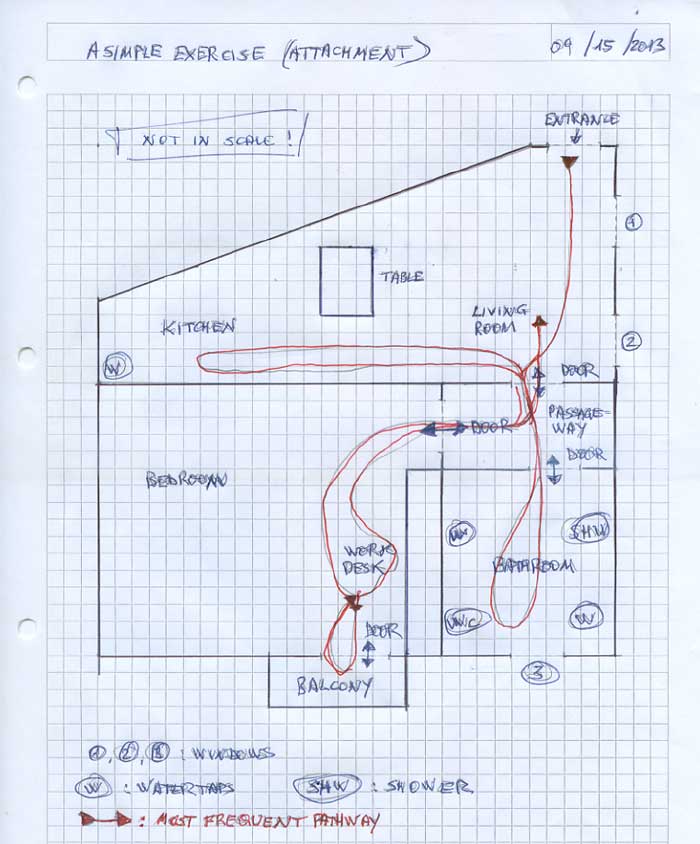 A SIMPLE EXERCISE (ATTACHMENT)
09 / 15 / 2013
NOT IN SCALE !
ENTRANCE
1
TABLE
LIVING
ROOM
KITCHEN
2
W
DOOR
PASSAGE=
WAY
DOOR
DOOR
BEDROOM
W
SHW
WORK
DESK
BATHROOM
W
DOOR
3
BALCONY
1, 2, 3 : WINDOWS
W : WATERTAPS SHW : SHOWER
: MOST FREQUENT PATHWAY